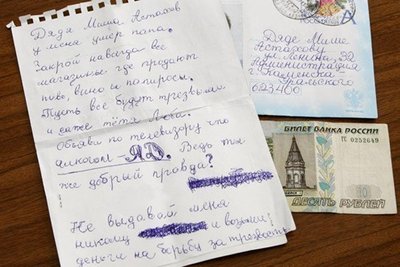 Дядя Миша Астахов
у меня умер папа.
Закрой навсегда все
магазины где продают
пиво, вино и папиросы.
Пусть все будут трезвыми
и даже тётя Лена.
объяви по телевизору что
алкоголь ЯД. Ведь ты
же добрый правда?
Не выдовай меня
никому и возьми
деньги на борьбу за трезвость
Дяде Мише
Астахову
ул Ленина, 32
Администрация
г. Каменска
Уральского
623400
БИЛЕТ БАНКА РОССИИ
ТГ 0252649
10
ДЕСЯТЬ РУБЛЕЙ